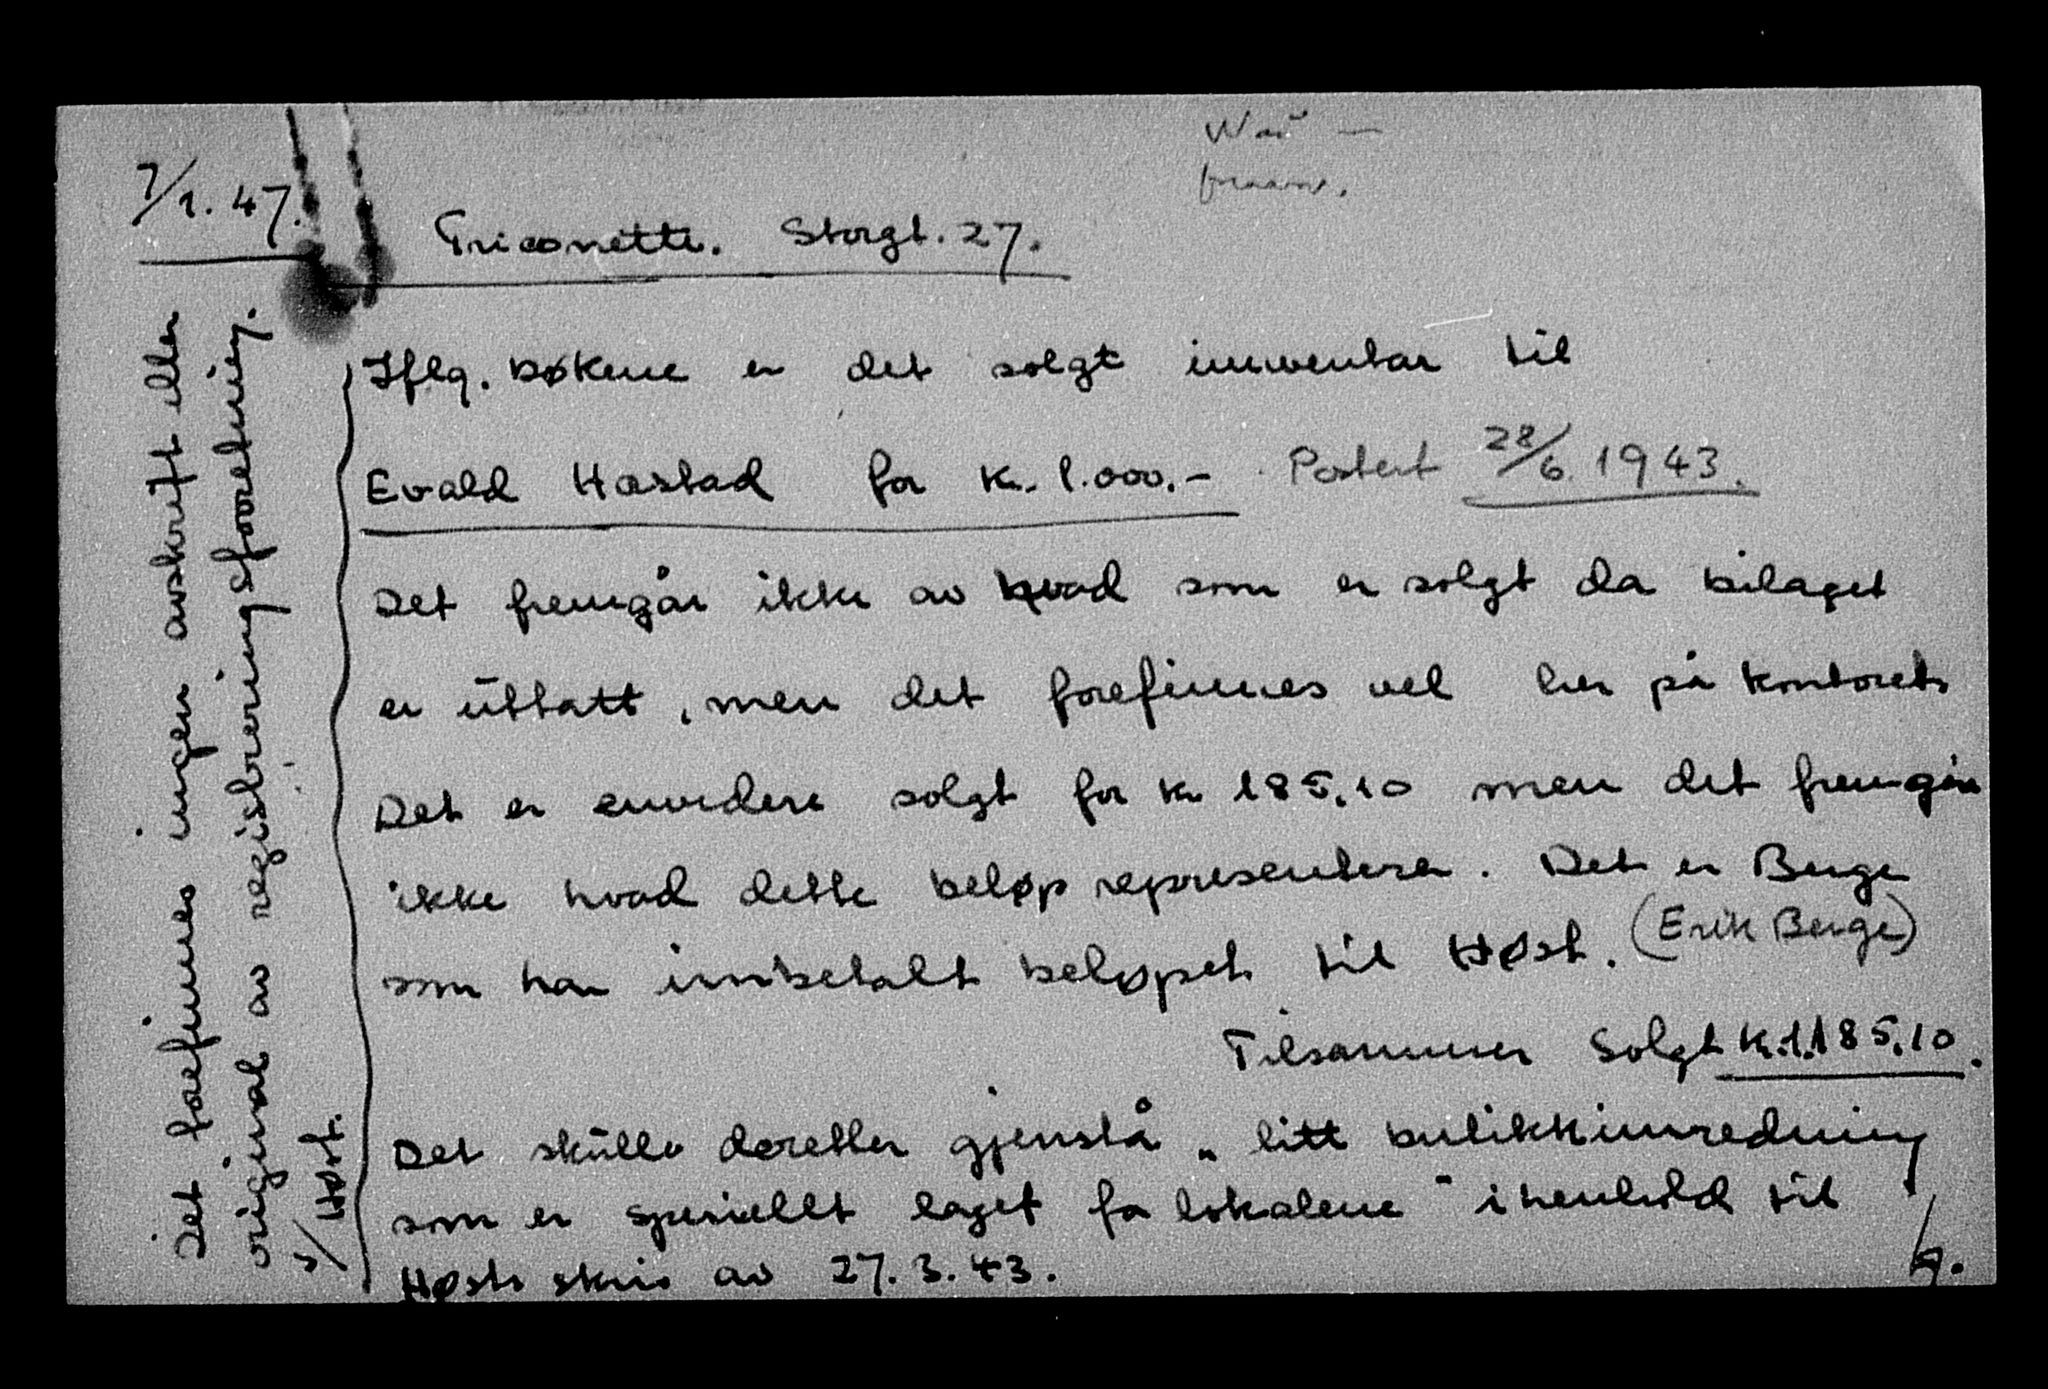 7/1. 47.
Triconette. Storgt. 27.
Iflg. bøkene er det solgt innventar til
Evald Hastad for kr. 1.000.- Postert 28/6. 1943.
Det fremgår ikke av hvad som er solgt da bilaget
er uttatt, men det forefinnes vel her på kontoret.
Det er envidere solgt for kr 185,10 men det fremgår
ikke hvad dette beløp representerer. Det er Berge
som har innbetalt beløpet til Høst. (Erik Berge)
Tilsammen Solgt kr. 1.185,10.
Det skulle deretter gjenstå „ litt butikkinnredning
som er speciellt laget for lokalene " i henhold til
Høsts skriv av 27.3.43.
Det forefinnes ingen avskrift eller
original av registreringsforretning.
v/ Høst.